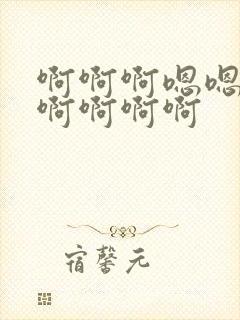 啊啊啊嗯嗯
啊啊啊啊
宿馨元